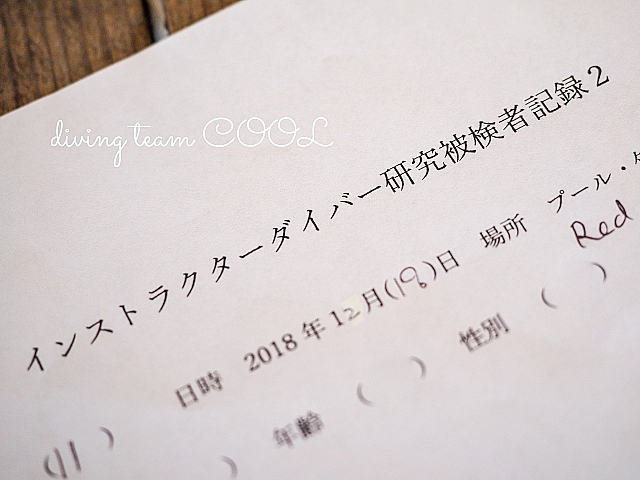 diving team COOL
インストラクターダイバー研究被検者記録2
日時 2018年12月(18)日 場所 プール・
Red
(11 ) 年齢 ( ) 性別 ( )
)